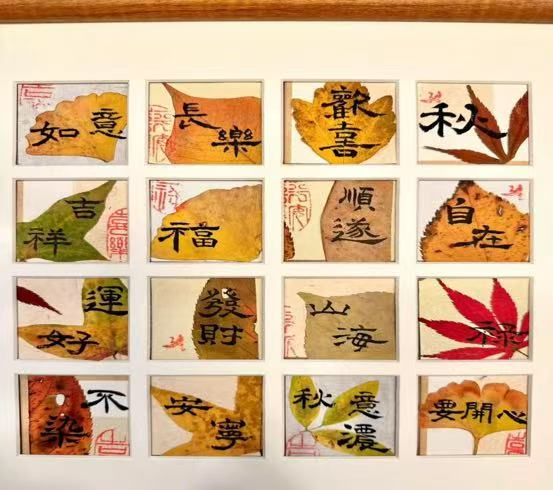 如意
長樂
歡喜
秋
吉祥
福
順遂
自在
運好
發財
山海
祿
不染
安寧
秋意濃
要開心